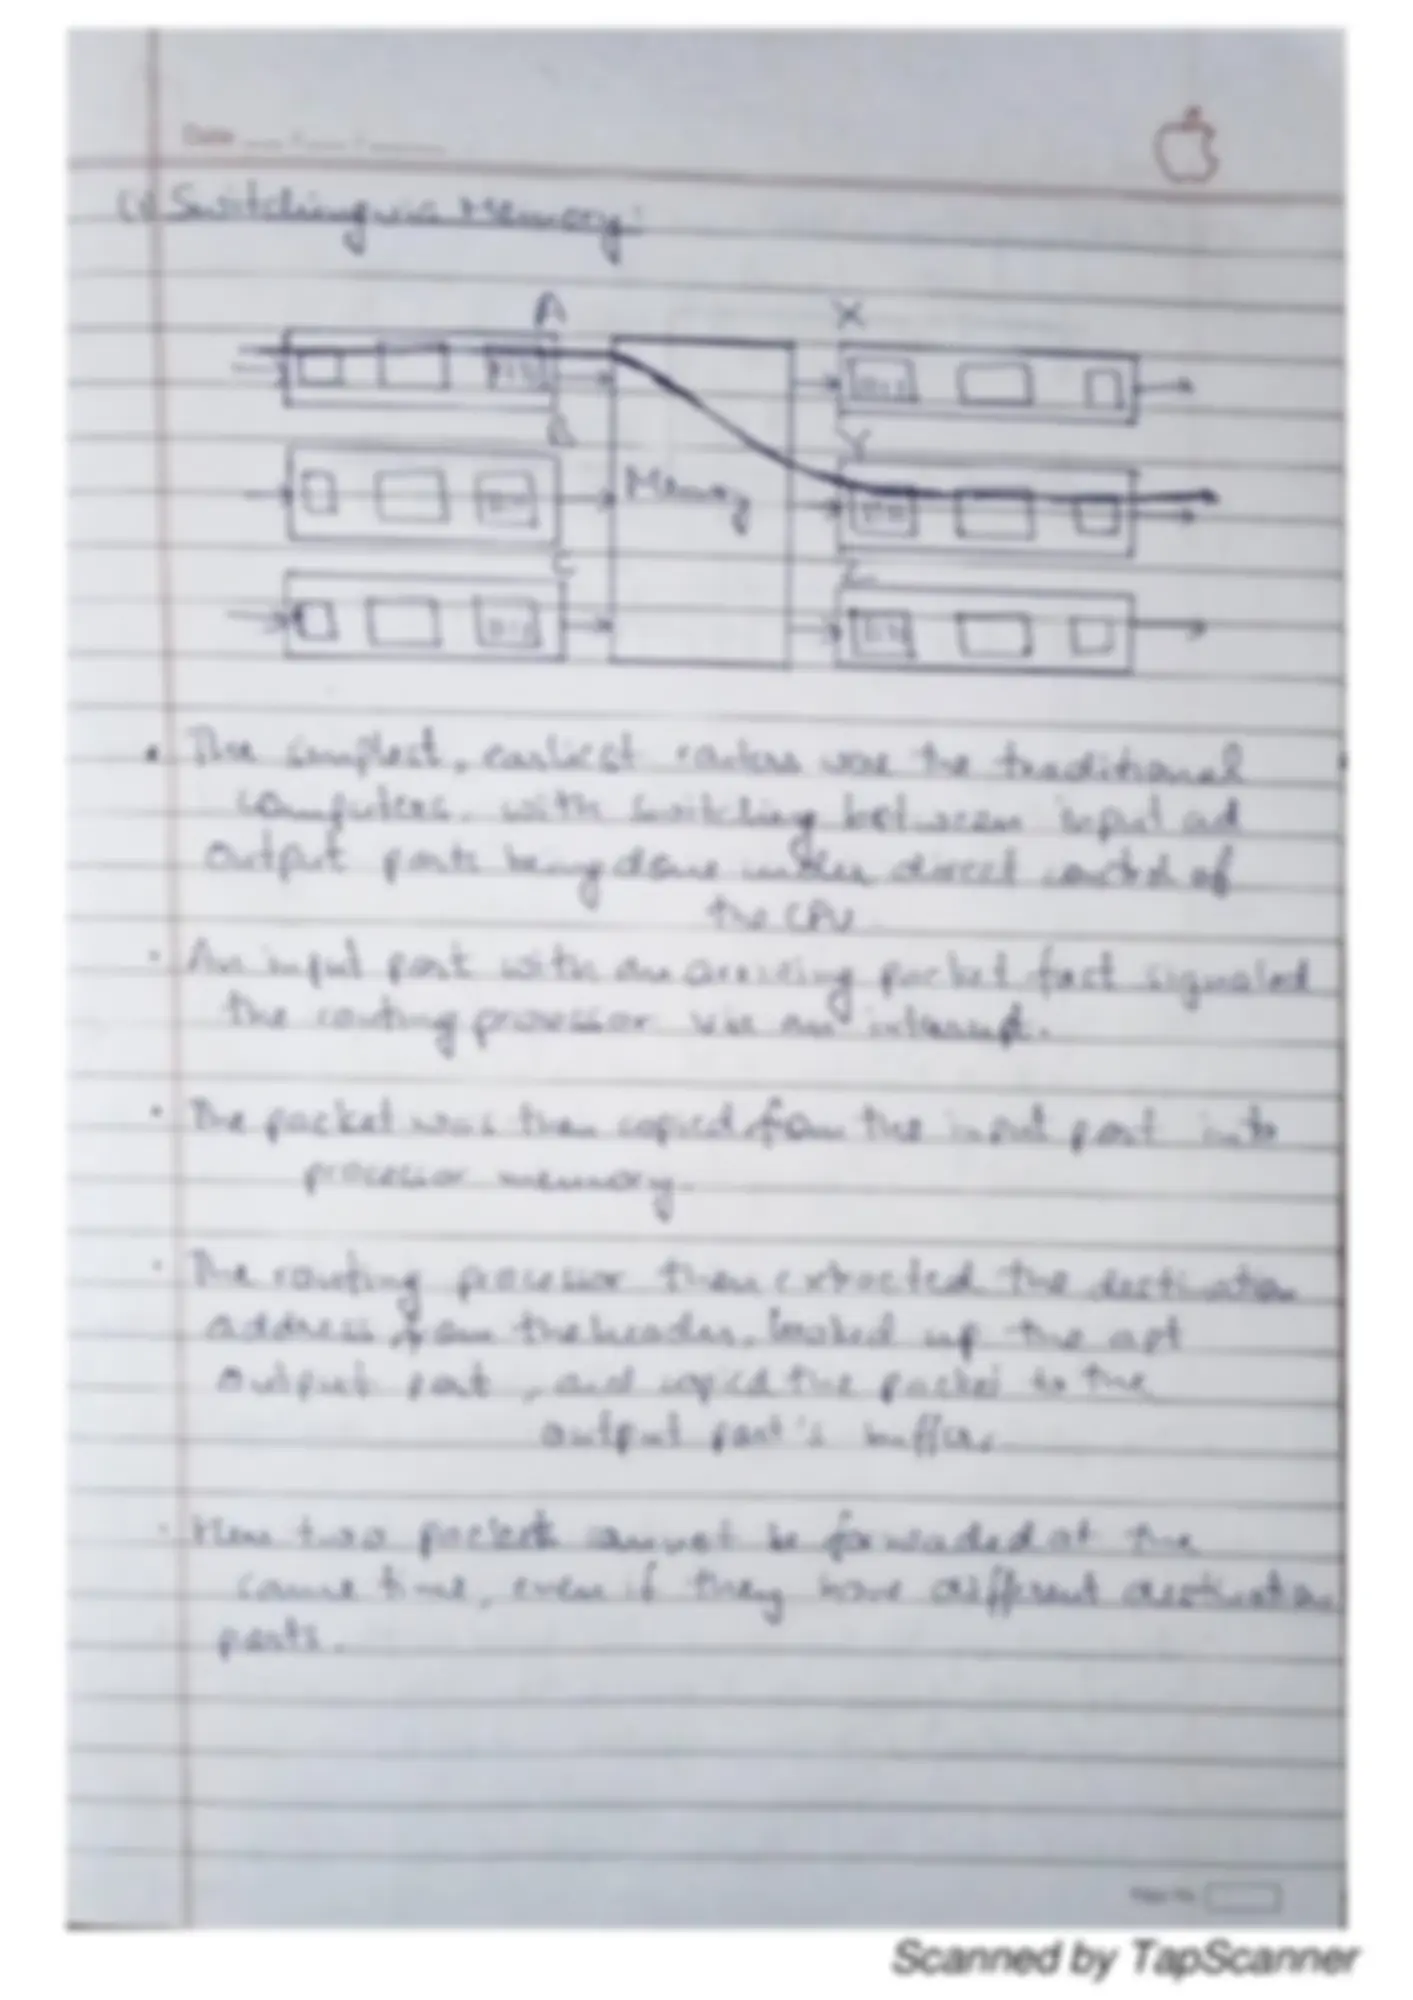 Date
Switching via Memory:
A X
B Y
Memory
C Z
• The simplest, earliest routers were the traditional
computers, with switching between input ad
output ports being done under direct control of
the CPU.
• An input port with an arriving packet fast signaled
the routing processor via an interrupt.
• The packet was then copied from the input port into
processor memory.
• The routing processor then extracted the destination
address from the header, looked up the apt
output port, and copied the packet to the
output port's buffers.
two packets cannot be forwaded at the
same time, even if they have different destination
ports.
Page No.
Scanned by TapScanner